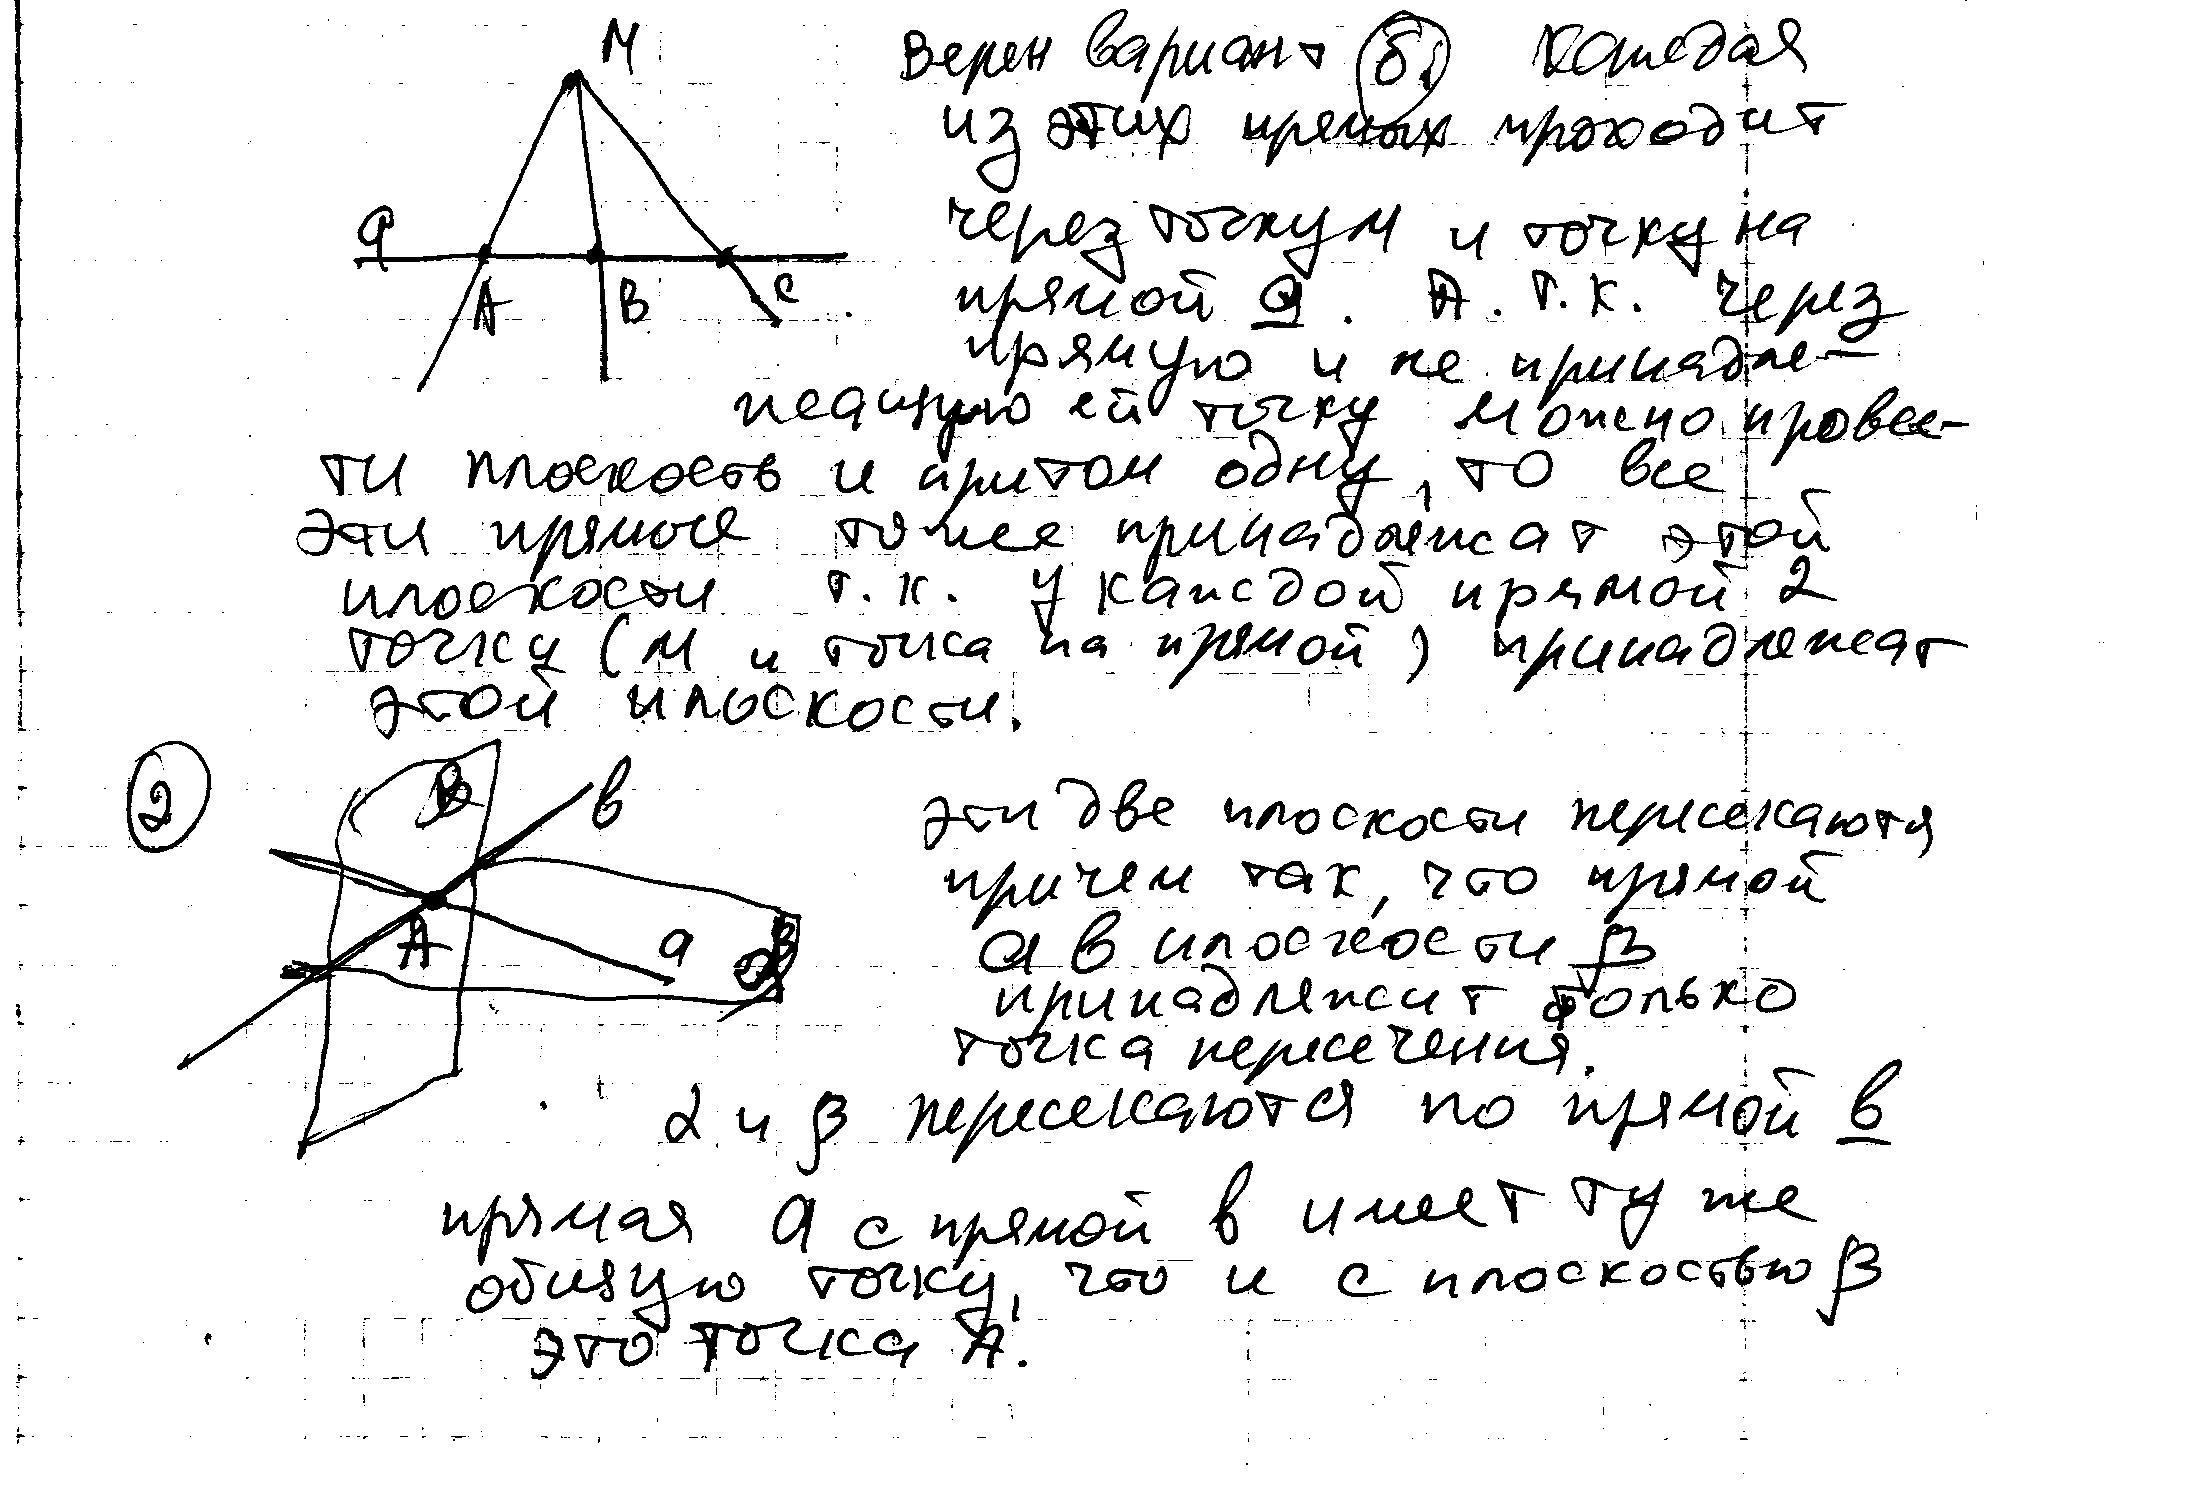 М
Верен вариант б) Каждая
из этих прямых проходит
через точку М и точку на
a
прямой a. А т.к. через
A B C
прямую и не принадле-
жащую ей точку можно провес-
ти плоскость и притом одну, то все
эти прямые тоже принадлежат этой
плоскости т.к. у каждой прямой 2
точки (М и точка на прямой) принадлежат
этой плоскости.
2
β в
эти две плоскости пересекаются
причем так, что прямой
A a
a в плоскости β
принадлежит только
точка пересечения.
α и β пересекаются по прямой в
прямая a с прямой в имеет ту же
общую точку, что и с плоскостью β
это точка А.